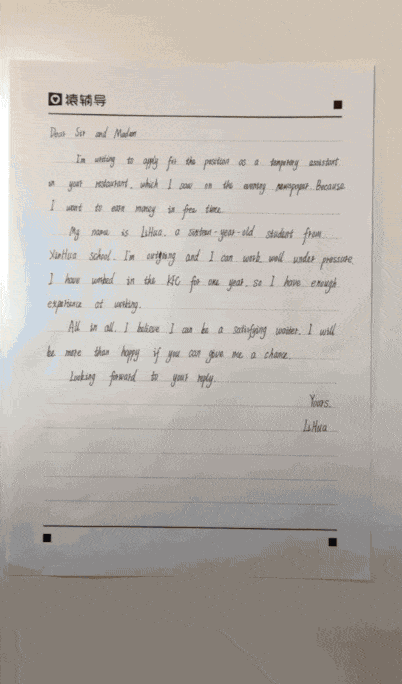 猿辅导
Dear Sir and Madam
I'm writing to apply for the position as a temporary assistant
in your restaurant, which I saw on the evening newspaper. Because
I want to earn money in free time.
My name is LiHua, a sixteen-year-old student from
XinHua school. I'm outgoing and I can work well under pressure.
I have worked in the KFC for one year, so I have enough
experience at working.
All in all, I believe I can be a satisfying waiter. I will
be more than happy if you can give me a chance.
Looking forward to your reply.
Yours,
LiHua